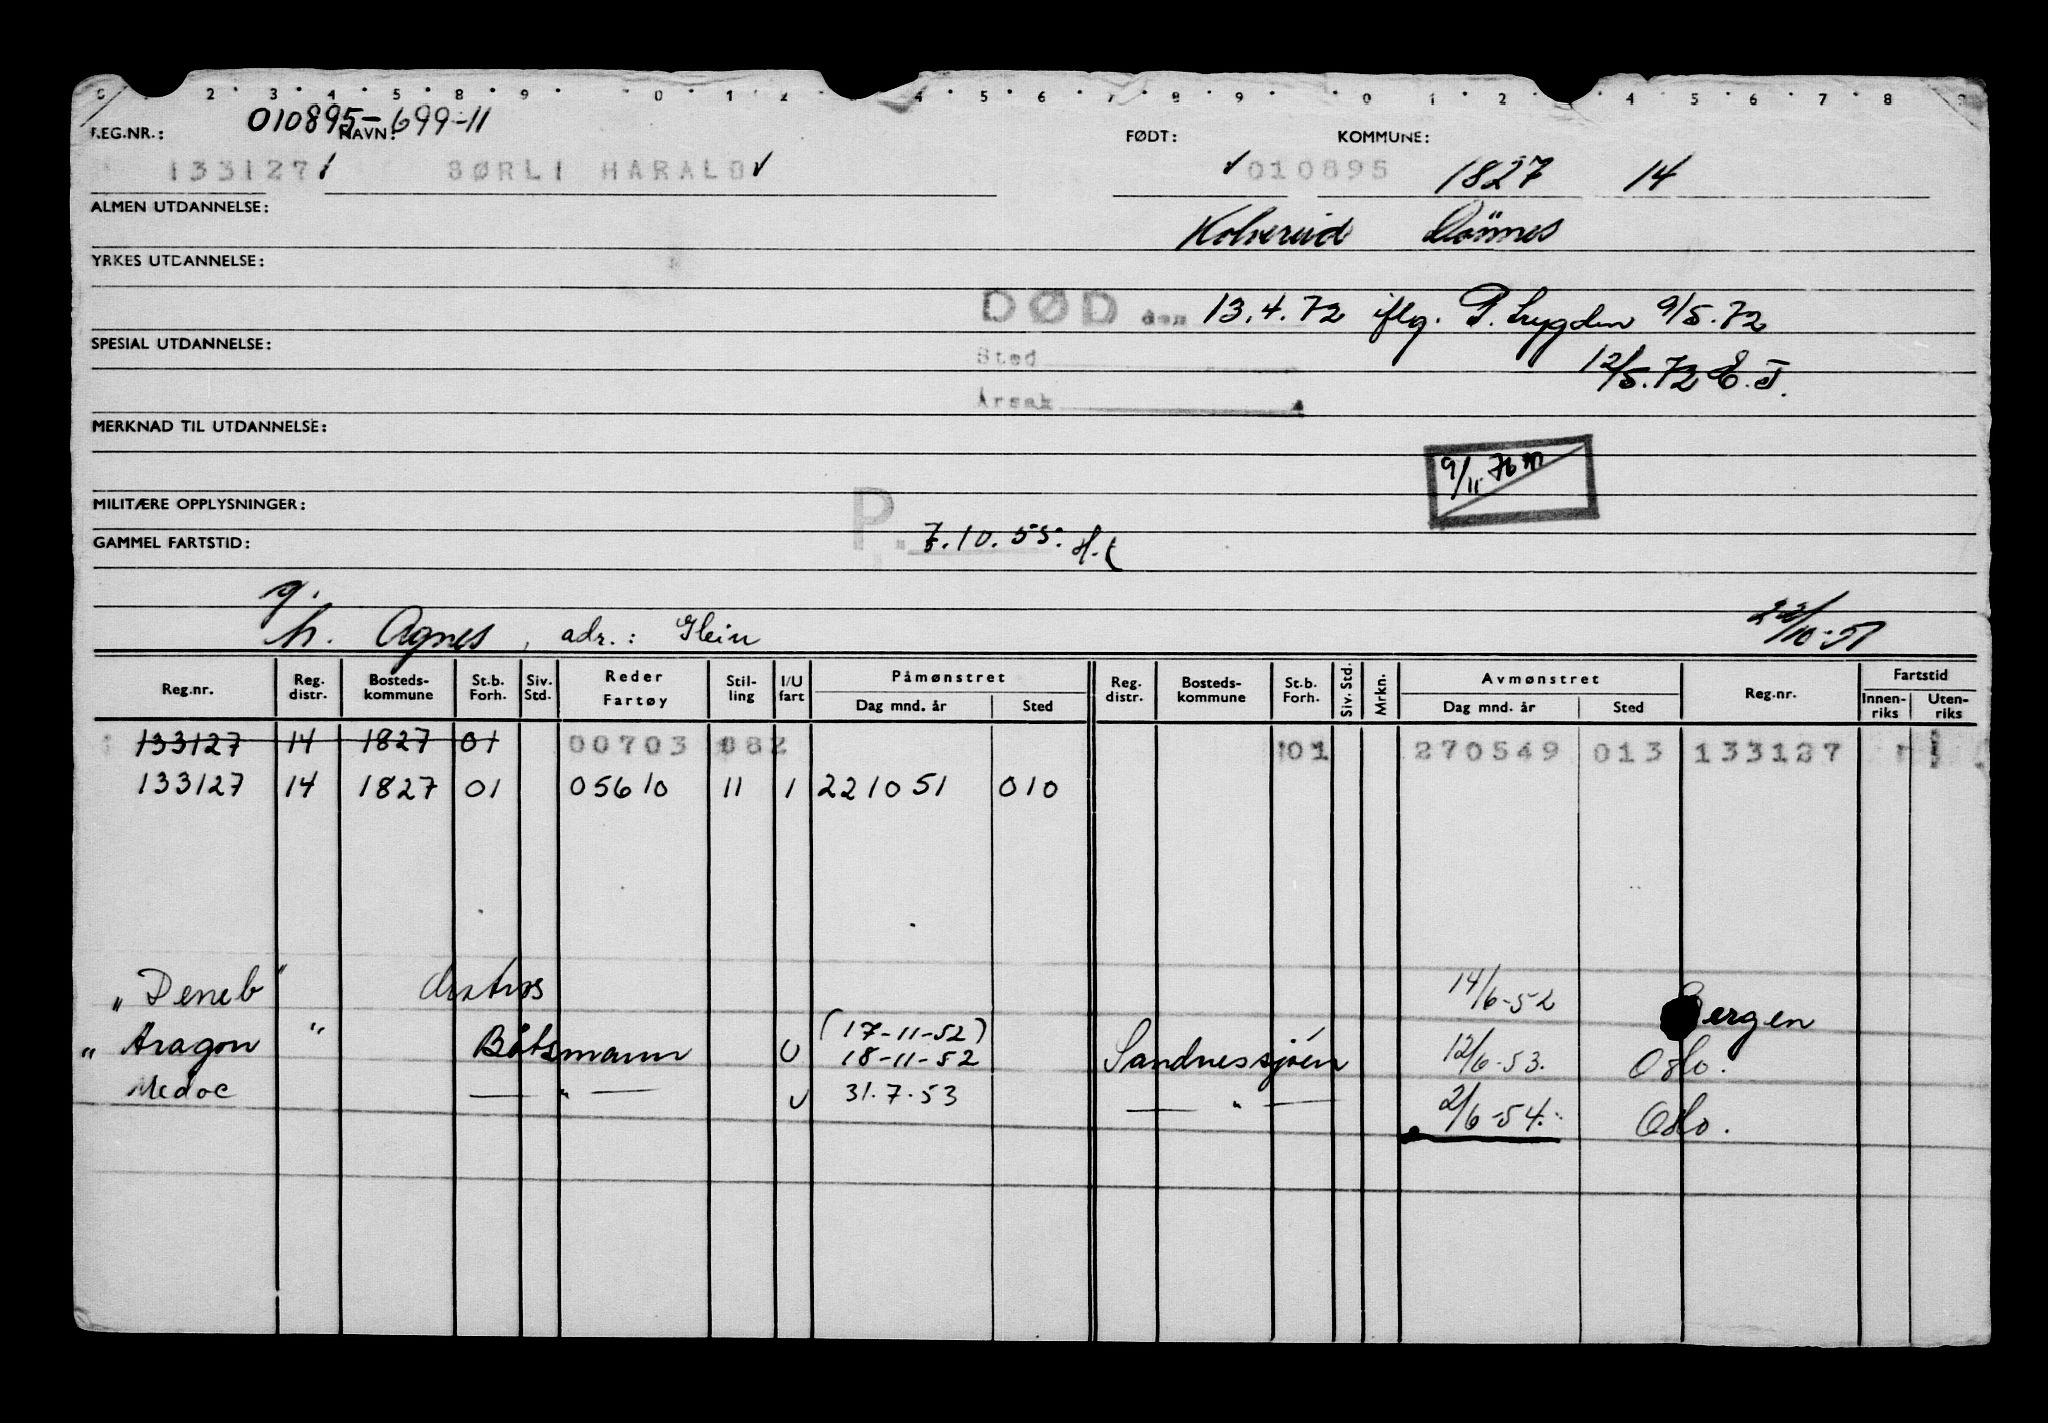 010895-699-11
REG.NR.: NAVN: FØDT: KOMMUNE:
133127 SØRLI HARALD 010895 1827 14
ALMEN UTDANNELSE:
Kolvereid Dönnes
YRKES UTDANNELSE:
DØD den 13.4.72 iflg. P. Trygden 9/5.72
SPESIAL UTDANNELSE:
Sted
12/5.72 E.J.
Årsak
MERKNAD TIL UTDANNELSE:
9/11 76 m
MILITÆRE OPPLYSNINGER:
P. 7.10.55.
GAMMEL FARTSTID:
g.
h. Agnes, adr.: Glein 22/10-51
Reg.nr. Reg. distr. Bosteds- kommune St.b. Forh. Siv. Std. Reder Fartøy Stil- ling I/U fart Påmønstret Dag mnd. år Sted Reg. distr. Bosteds- kommune St.b. Forh. Siv. Std. Mrkn. Avmønstret Dag mnd. år Sted Reg.nr. Fartstid Innen- riks Uten- riks
133127 14 1827 01 00703 082 01 270549 013 133127
133127 14 1827 01 05610 11 1 221051 010
„Deneb" 14/6-52 Bergen
(17-11-52)
„Aragon" Båtsmann U 18-11-52 Sandnessjöen 12/6-53. Oslo.
Medoc — " — U 31.7.53 — " — 2/6-54. Oslo.